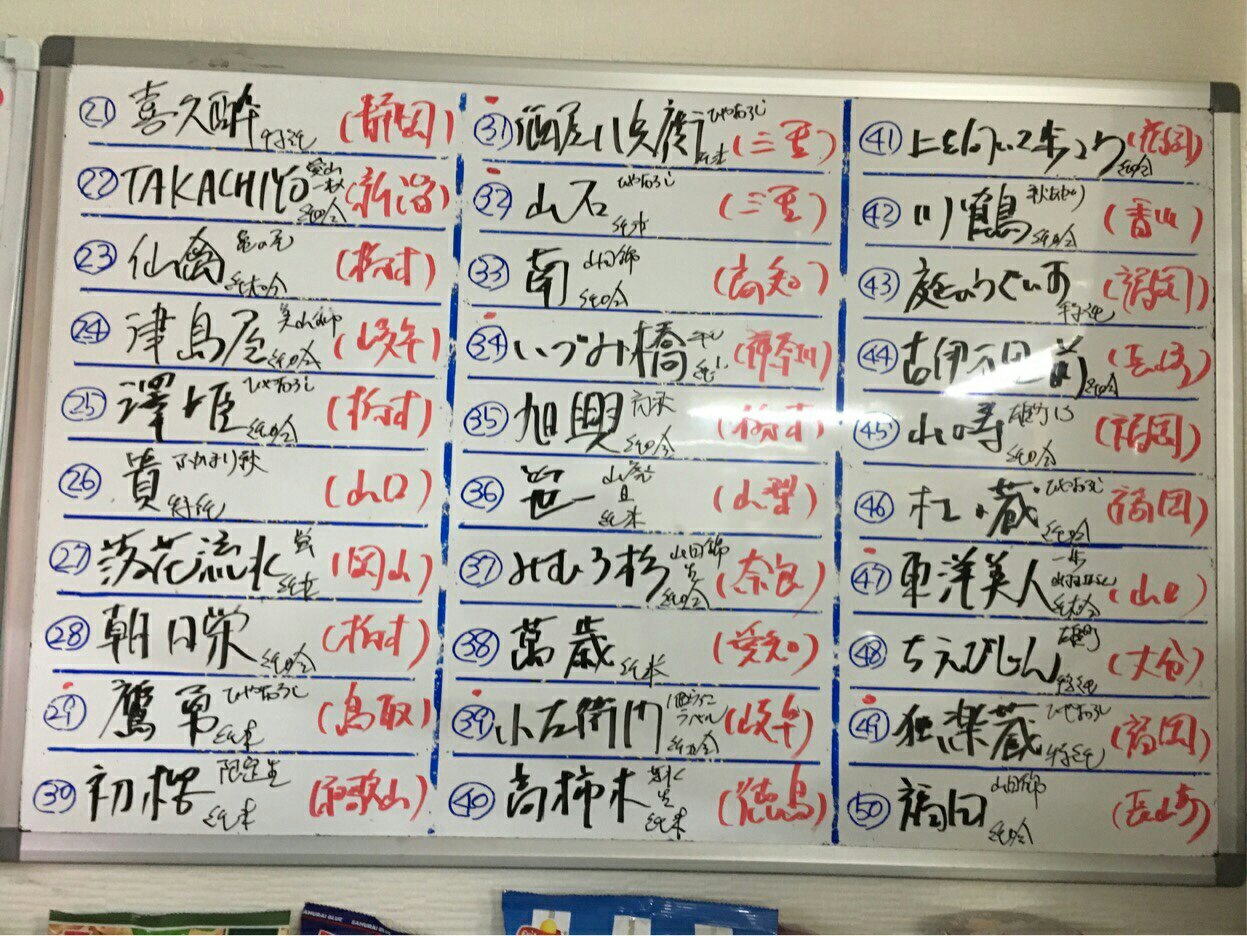 ㉑ 喜久酔 特純 (静岡)
㉒ TAKACHIYO 愛山 純吟 (新潟)
㉓ 仙禽 亀の尾 純大吟 (栃木)
㉔ 津島屋 純吟 (岐阜)
㉕ 澤姫 ひやおろし 純吟 (栃木)
㉖ 貴 ふかまり秋 特純 (山口)
㉗ 落花流水 蛍 純米 (岡山)
㉘ 朝日栄 純吟 (栃木)
㉙ 鷹勇 ひやおろし 純米 (鳥取)
㉚ 初桜 限定生 純米 (和歌山)
㉛ 酒屋八兵衛 ひやおろし 純米 (三重)
㉜ 山石 ひやおろし 純米 (三重)
㉝ 南 山田錦 純吟 (高知)
㉞ いづみ橋 (神奈川)
㉟ 旭興 純吟 (栃木)
㊱ 笹一 山廃 純米 (山梨)
㊲ みむろ杉 山田錦 生 純吟 (奈良)
㊳ 萬歳 純米 (愛知)
㊴ 小左衛門 ラベル 純吟 (岐阜)
㊵ 高柿木 生 純米 (徳島)
㊶ 純吟 (福岡)
㊷ 川鶴 秋あがり 純吟 (香川)
㊸ 庭のうぐいす 特純 (福岡)
㊹ 純吟 (長崎)
㊺ 山の寿 雄町 純吟 (福岡)
㊻ 杜の蔵 ひやおろし 純吟 (福岡)
㊼ 東洋美人 一歩 純大吟 (山口)
㊽ ちえびじん 雄町 特純 (大分)
㊾ 独楽蔵 ひやおろし 特純 (福岡)
㊿ 福田 山田錦 純吟 (長崎)
SAMURAI BLUE
SAMURAI BLUE